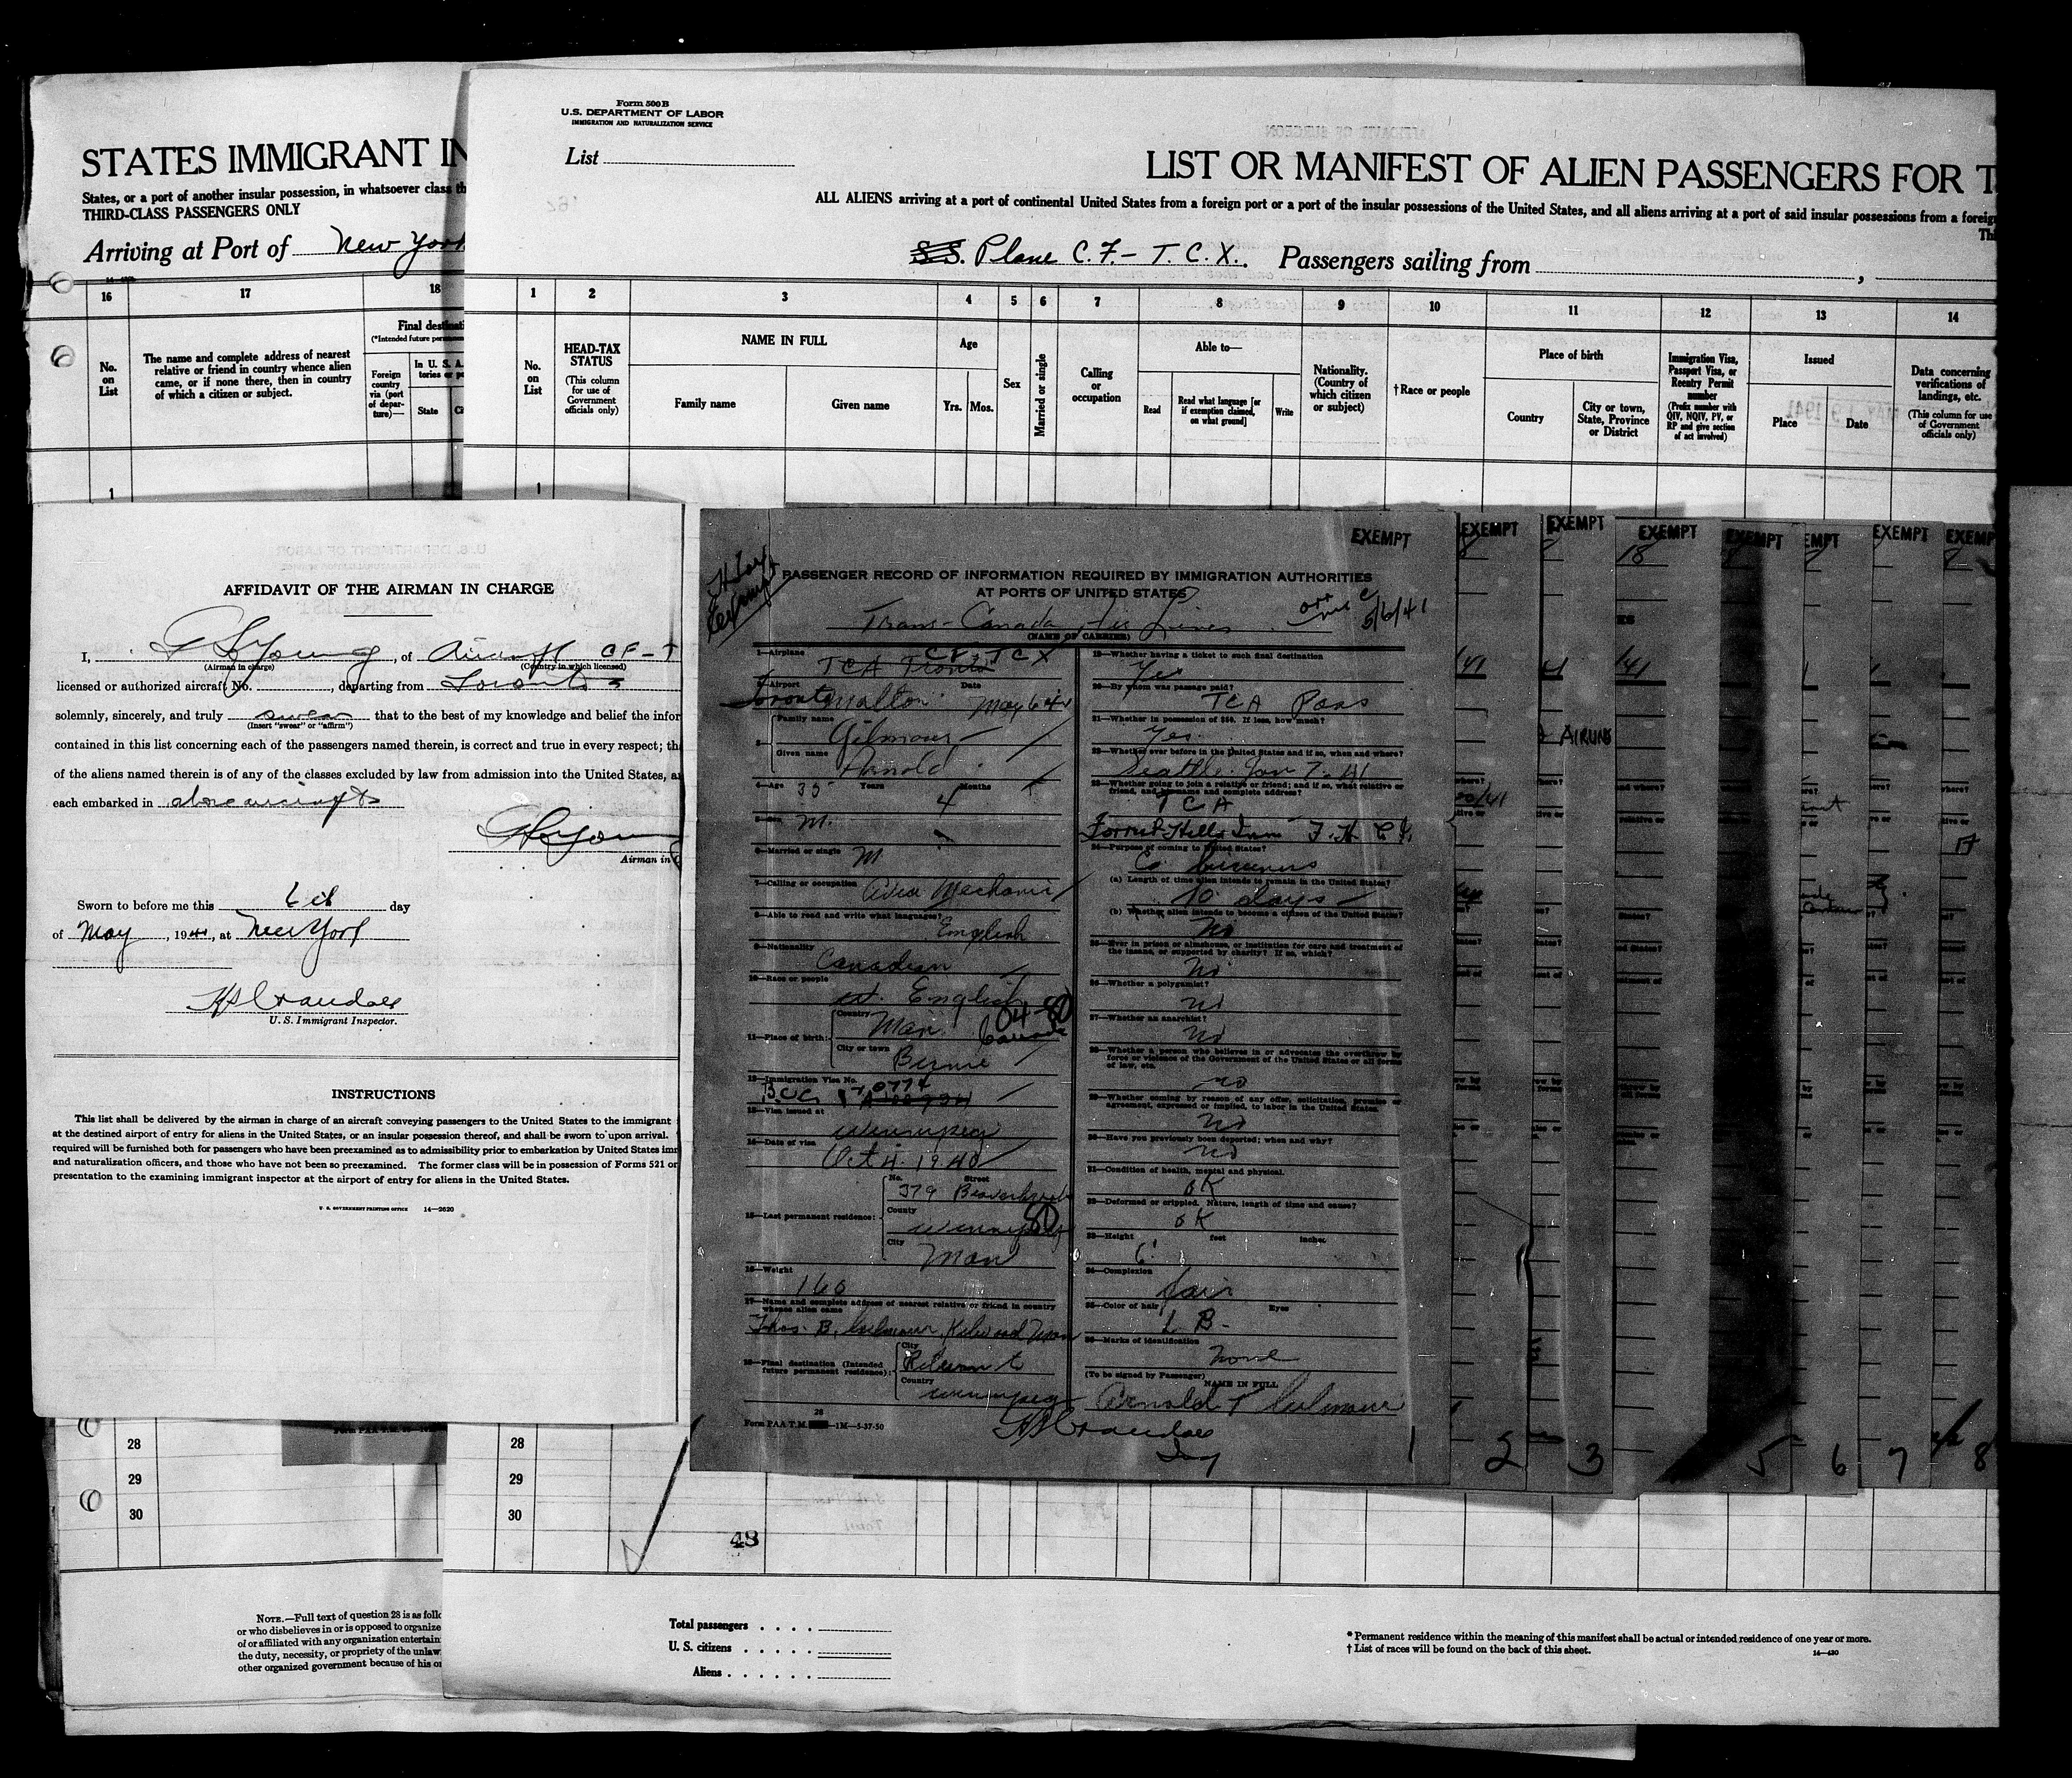 STATES IMMIGRANT IN
States, or a port of another insular possession, in whatsoever class th
THIRD-CLASS PASSENGERS ONLY
Arriving at Port of New York
16 17 18
No. on List
The name and complete address of nearest
relative or friend in country whence alien
came, or if none there, then in country
of which a citizen or subject.
Final destinati
(*Intended future perman
Foreign
country
via (port
of depar-
ture)—
In U. S. A.
tories or po
State
Ci
1
Form 500 B
U.S. DEPARTMENT OF LABOR
IMMIGRATION AND NATURALIZATION SERVICE
List
LIST OR MANIFEST OF ALIEN PASSENGERS FOR T
ALL ALIENS arriving at a port of continental United States from a foreign port or a port of the insular possessions of the United States, and all aliens arriving at a port of said insular possessions from a foreign
Thi
S.S. Plane C.F.-T.C.X. Passengers sailing from ,
1 2 3 4 5 6 7 8 9 10 11 12 13 14
No.
on
List
HEAD-TAX
STATUS
(This column
for use of
Government
officials only)
NAME IN FULL
Family name
Given name
Age
Yrs. Mos.
Sex
Married or single
Calling
or
occupation
Able to—
Read
Read what language [or
if exemption claimed,
on what ground]
Write
Nationality.
(Country of
which citizen
or subject)
†Race or people
Place of birth
Country
City or town,
State, Province
or District
Immigration Visa,
Passport Visa, or
Reentry Permit
number
(Prefix number with
QIV, NQIV, PV, or
RP and give section
of act involved)
Issued
Place
Date
Data concerning
verifications of
landings, etc.
(This column for use
of Government
officials only)
1
AFFIDAVIT OF THE AIRMAN IN CHARGE
I, Young, of Aircraft CF-T
(Airman in charge) (Country in which licensed)
licensed or authorized aircraft No. , departing from Toronto
solemnly, sincerely, and truly swear that to the best of my knowledge and belief the infor
(Insert "swear" or "affirm")
contained in this list concerning each of the passengers named therein, is correct and true in every respect; th
of the aliens named therein is of any of the classes excluded by law from admission into the United States, a
each embarked in above aircraft
Airman in C
Sworn to before me this 6th day
of May, 1941, at New York
H S Crandall
U. S. Immigrant Inspector.
INSTRUCTIONS
This list shall be delivered by the airman in charge of an aircraft conveying passengers to the United States to the immigrant
at the destined airport of entry for aliens in the United States, or an insular possession thereof, and shall be sworn to upon arrival.
required will be furnished both for passengers who have been preexamined as to admissibility prior to embarkation by United States imm
and naturalization officers, and those who have not been so preexamined. The former class will be in possession of Forms 521 or
presentation to the examining immigrant inspector at the airport of entry for aliens in the United States.
U. S. GOVERNMENT PRINTING OFFICE 14—2620
EXEMPT
H. Tax
Exempt
PASSENGER RECORD OF INFORMATION REQUIRED BY IMMIGRATION AUTHORITIES
AT PORTS OF UNITED STATES
Trans-Canada Air Lines 5/6/41
(NAME OF CARRIER)
1—Airplane CF TCX
TCA Toronto
2—Airport Date
Toronto Malton May 6 41
Family name
Gilmour
Given name
Arnold
4—Age 35 Years 4 Months
M.
6—Married or single M
7—Calling or occupation Mechanic
8—Able to read and write what languages?
English
9—Nationality
Canadian
10—Race or people
English
11—Place of birth: Country
Man. Canada
City or town
Birnie
12—Immigration Visa No.
70774
13—Visa issued at
Winnipeg
14—Date of visa
Oct 4. 1940
15—Last permanent residence: No. Street
379
County
Winnipeg
City
Man
16—Weight
160
17—Name and complete address of nearest relative or friend in country
whence alien came
Thos. B. Gilmour, Kelwood Man
18—Final destination (Intended
future permanent residence):
City
Return to
Country
Winnipeg
28
Form PAA T.M. —1M—5-37-50
19—Whether having a ticket to such final destination
Yes
20—By whom was passage paid?
TCA Pass
21—Whether in possession of $50. If less, how much?
Yes
22—Whether ever before in the United States and if so, when and where?
Seattle Jan 7. 41
23—Whether going to join a relative or friend; and if so, what relative or
friend, and his name and complete address?
TCA
Forrest Hills Inn
24—Purpose of coming to United States?
Co business
(a) Length of time alien intends to remain in the United States?
10 days
(b) Whether alien intends to become a citizen of the United States?
No
25—Ever in prison or almshouse, or institution for care and treatment of
the insane, or supported by charity? If so, which?
No
26—Whether a polygamist?
No
27—Whether an anarchist?
No
28—Whether a person who believes in or advocates the overthrow by
force or violence of the Government of the United States or all forms
of law, etc.
no
29—Whether coming by reason of any offer, solicitation, promise or
agreement, expressed or implied, to labor in the United States.
No
30—Have you previously been deported; when and why?
no
31—Condition of health, mental and physical.
OK
32—Deformed or crippled. Nature, length of time and cause?
OK
33—Height feet inches
6'
34—Complexion
fair
35—Color of hair Eyes
L B-
36—Marks of identification
None
(To be signed by Passenger) NAME IN FULL
Arnold T Gilmour
H S Crandall
1
EXEMPT EXEMPT EXEMPT EXEMPT EMPT EXEMPT EXEMP
18
AIRLINE
2 3 5 6 7 8
28
29
30
28
29
30
48
NOTE.—Full text of question 28 is as follo
or who disbelieves in or is opposed to organize
of or affiliated with any organization entertain
the duty, necessity, or propriety of the unlaw
other organized government because of his or
Total passengers . . . .
U. S. citizens . . . .
Aliens . . . . . .
* Permanent residence within the meaning of this manifest shall be actual or intended residence of one year or more.
† List of races will be found on the back of this sheet.
14—430